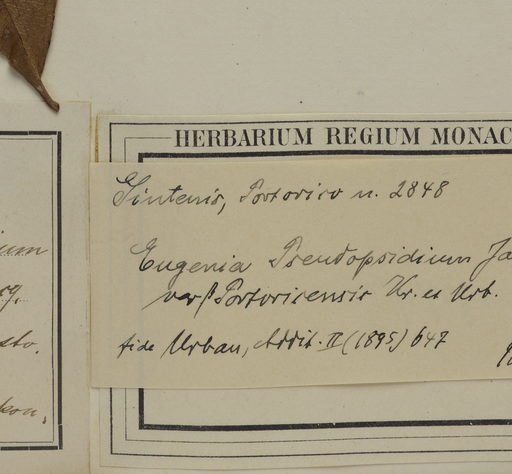 HERBARIUM REGIUM MONAC
Sintenis, Portorico n. 2848
Eugenia Pseudopsidium Ja
var β Portoricensis Kr. et Urb.
fide Urban, Addit. II (1895) 647
ium
sto.